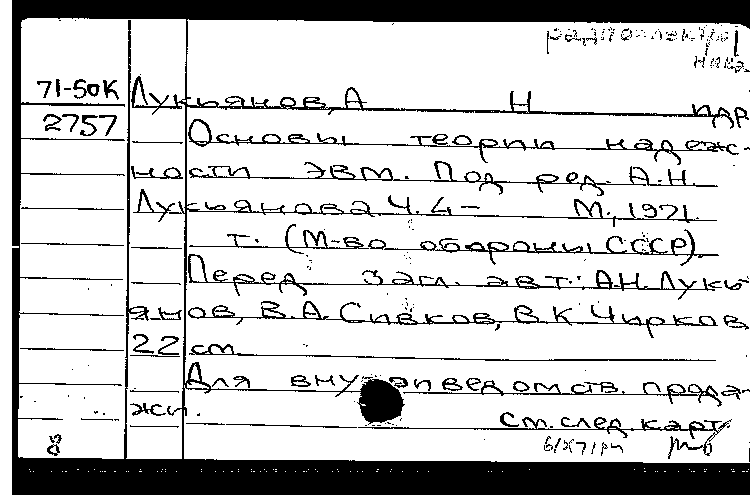 71-50К Лукьянов, А Н
2757 Основы теории надеж-
ности ЭВМ. Под ред. А.Н.
Лукьянова Ч. 4- М., 1971
т. (М-во обороны СССР).
Перед загл. авт.: А.Н. Лукь
янов, В.А. Сивков, В.К Чирков
22 см
Для внут иведомств. прода-
жи.
См. след. карт
8